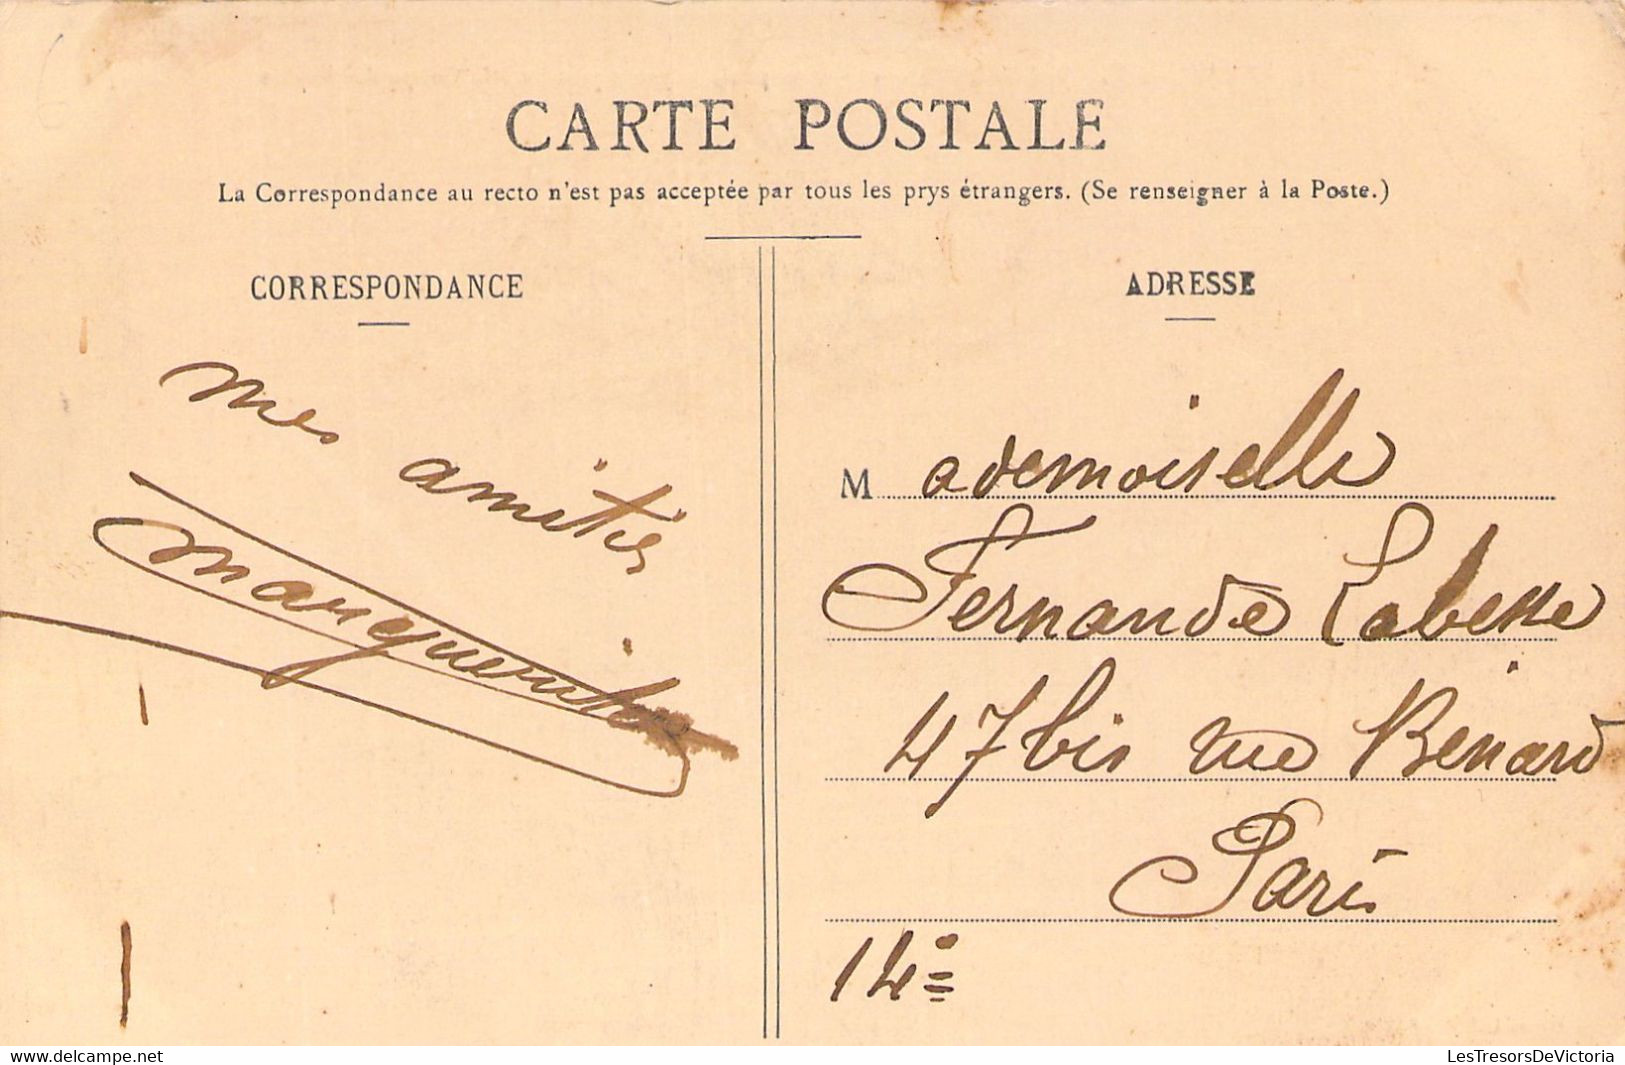 CARTE POSTALE
La Correspondance au recto n'est pas acceptée par tous les prys étrangers. (Se renseigner à la Poste.)
CORRESPONDANCE
mes amitiés
Marguerite
ADRESSE
Mademoiselle
Fernande
47 bis rue Bénard
Paris
14e
www.delcampe.net
LesTresorsDeVictoria